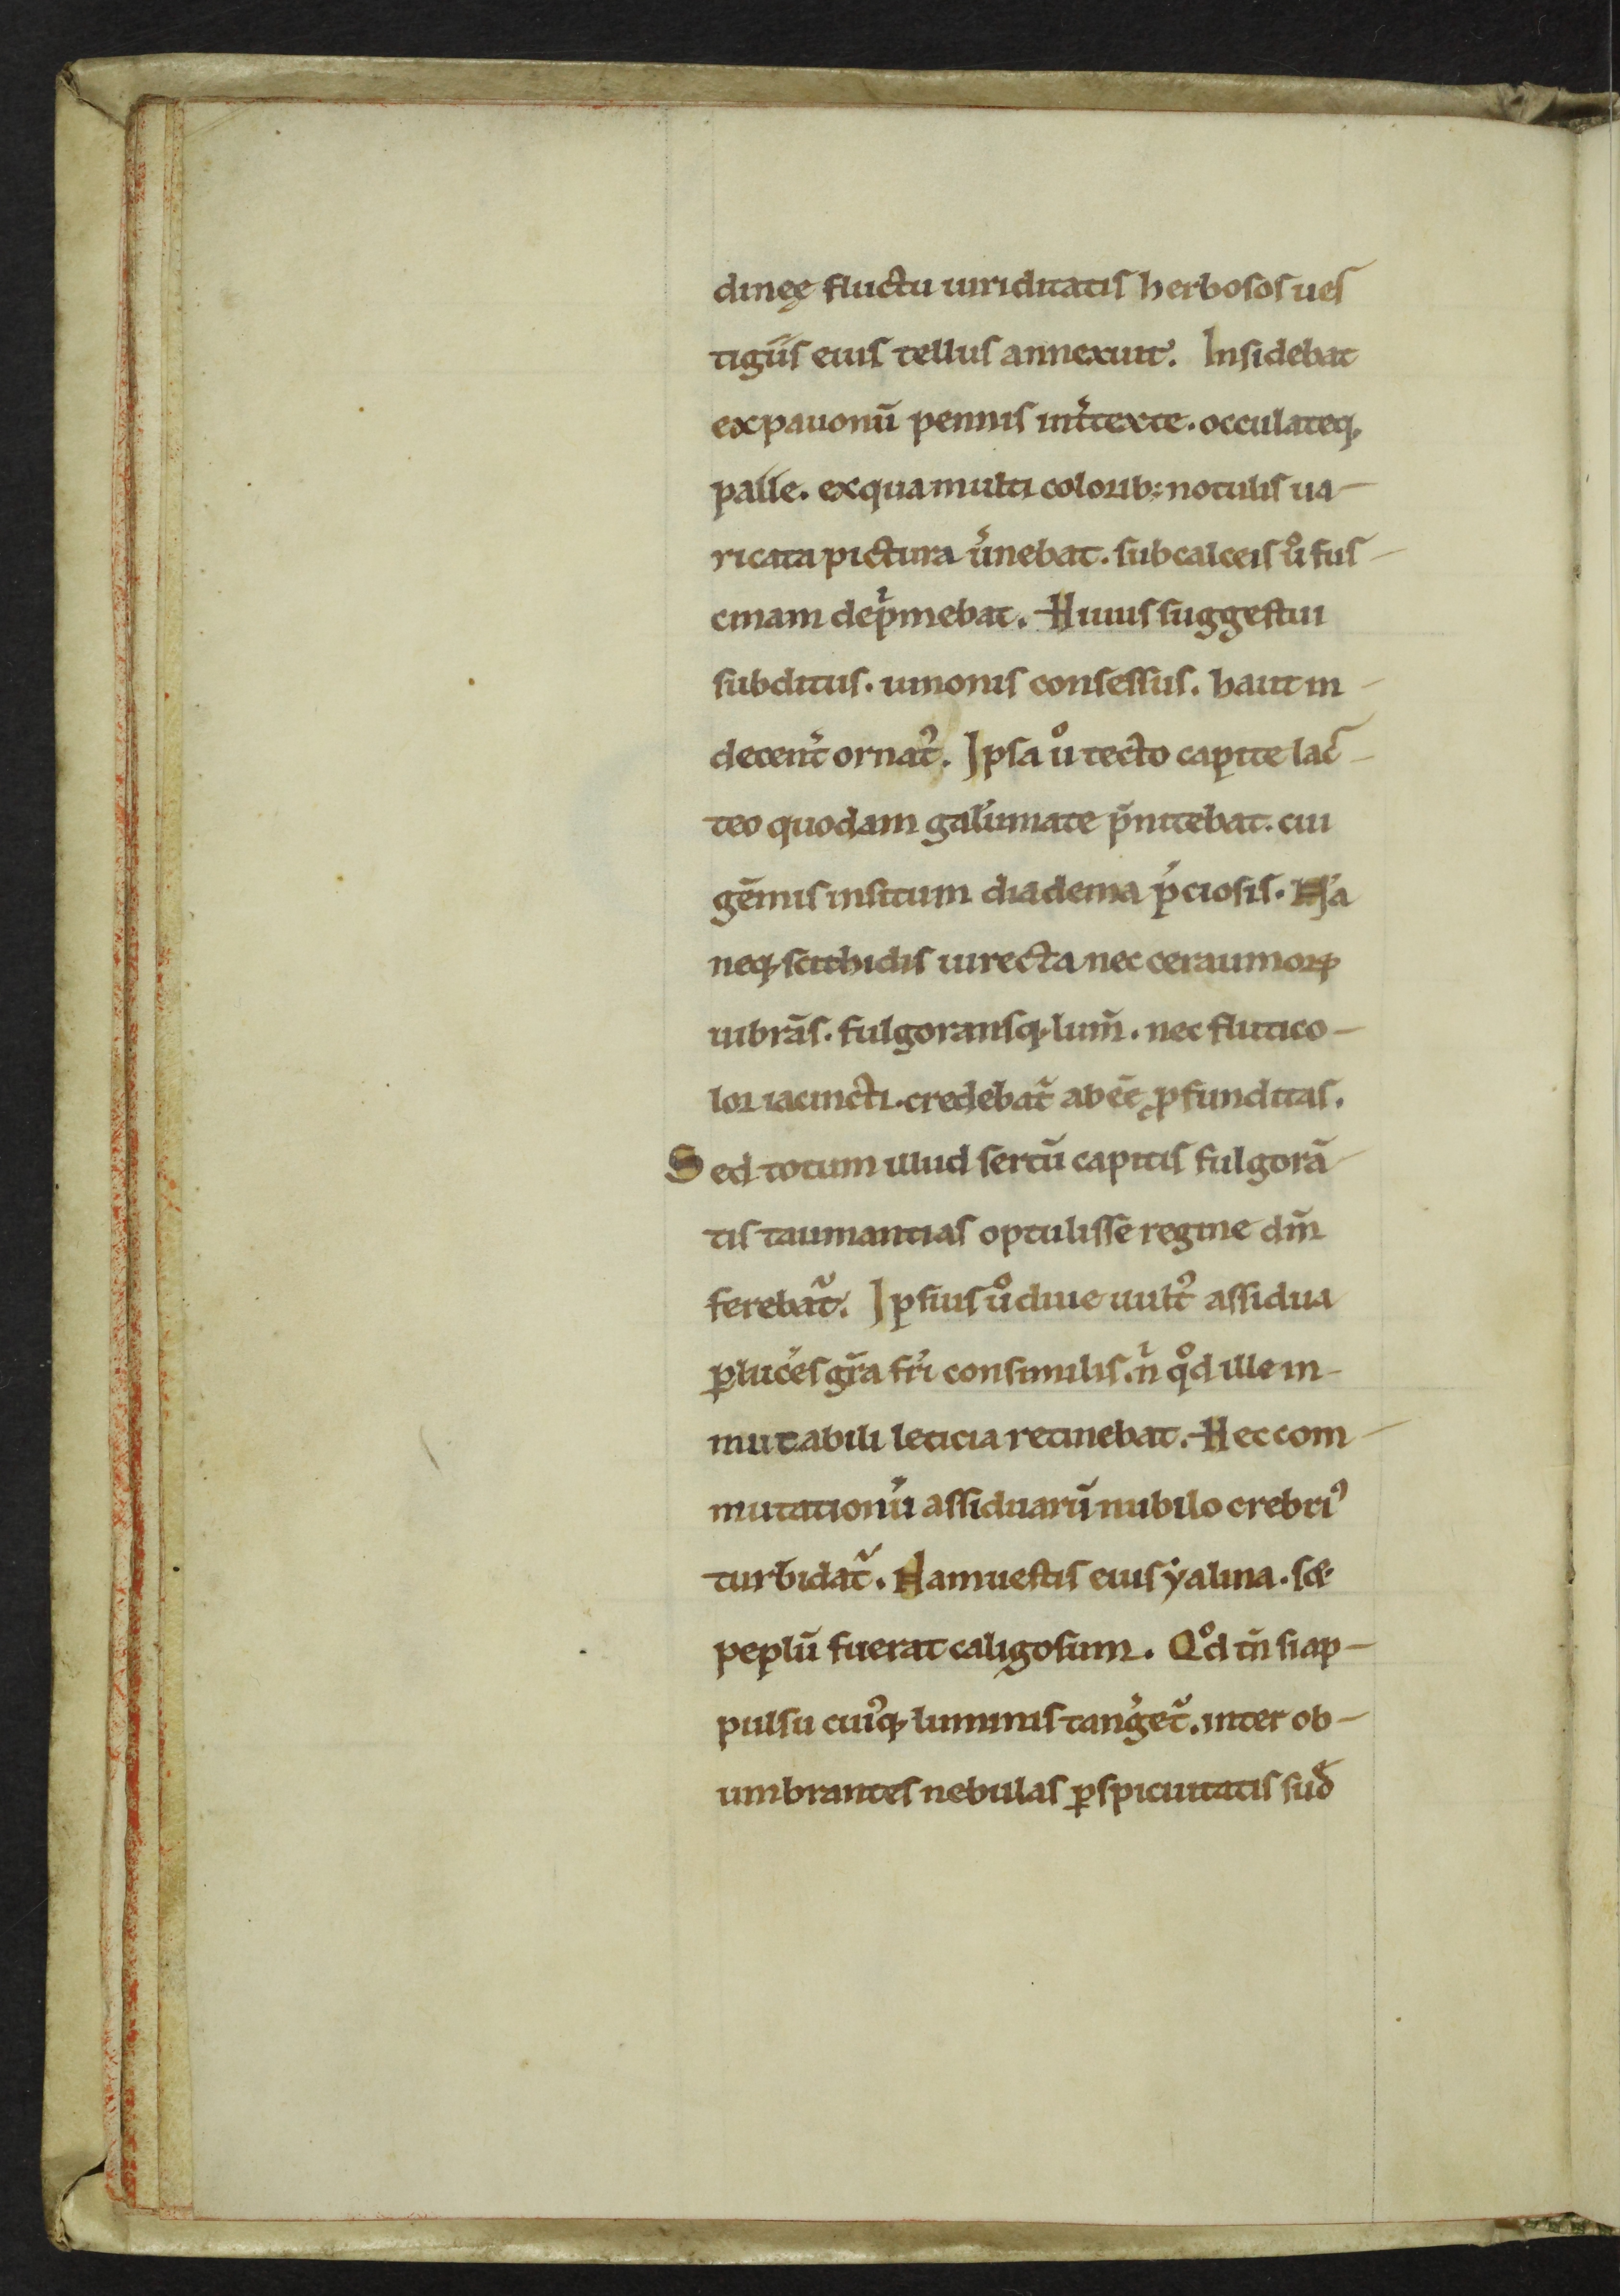 dineę fluctu uiriditatis herbosos ues
tigiis eius tellus annexuit. Insidebat
ex pauonū pennis int̾texte. occulateq;
palle. ex qua multi colorib; notulis ua-
ricata pictura u̾nebat. sub calceis ů fus-
cinam dep̾mebat. Huius suggestui
subditus. uinonis consessus. haut in-
decent̾ ornat᷒. Ipsa ů tecto capite lac-
teo quodam galiumate p̄nitebat. cui
gēmis insitum diadema p̄ciosis. Nā
neq; scithidis uirecta nec cerauniorꝝ
uibrās. fulgoransq; lum̄. nec flutico-
lor iacincti. credebat᷑ abēē ꝓfunditas.
Sed totum illud sertū capitis fulgorā
tis taumantias optulisse regine dm̄
ferebat᷑. Ipsius ů diue uult᷒ assidua
ꝑlucēs gr̄a fr̄i consimilis. n̄ qd̊ ille in-
mutabili leticia retinebat. Hec com-
mutationū assiduarū nubilo crebri᷒
turbidat᷑. Nam uestis eius yalina. sꝫ
peplū fuerat caligosum. Qd̊ tn̄ si ap-
pulsu cui᷒q; luminis tang̾et᷑. inter ob-
umbrantes nebulas ꝑspicuitatis sud̾